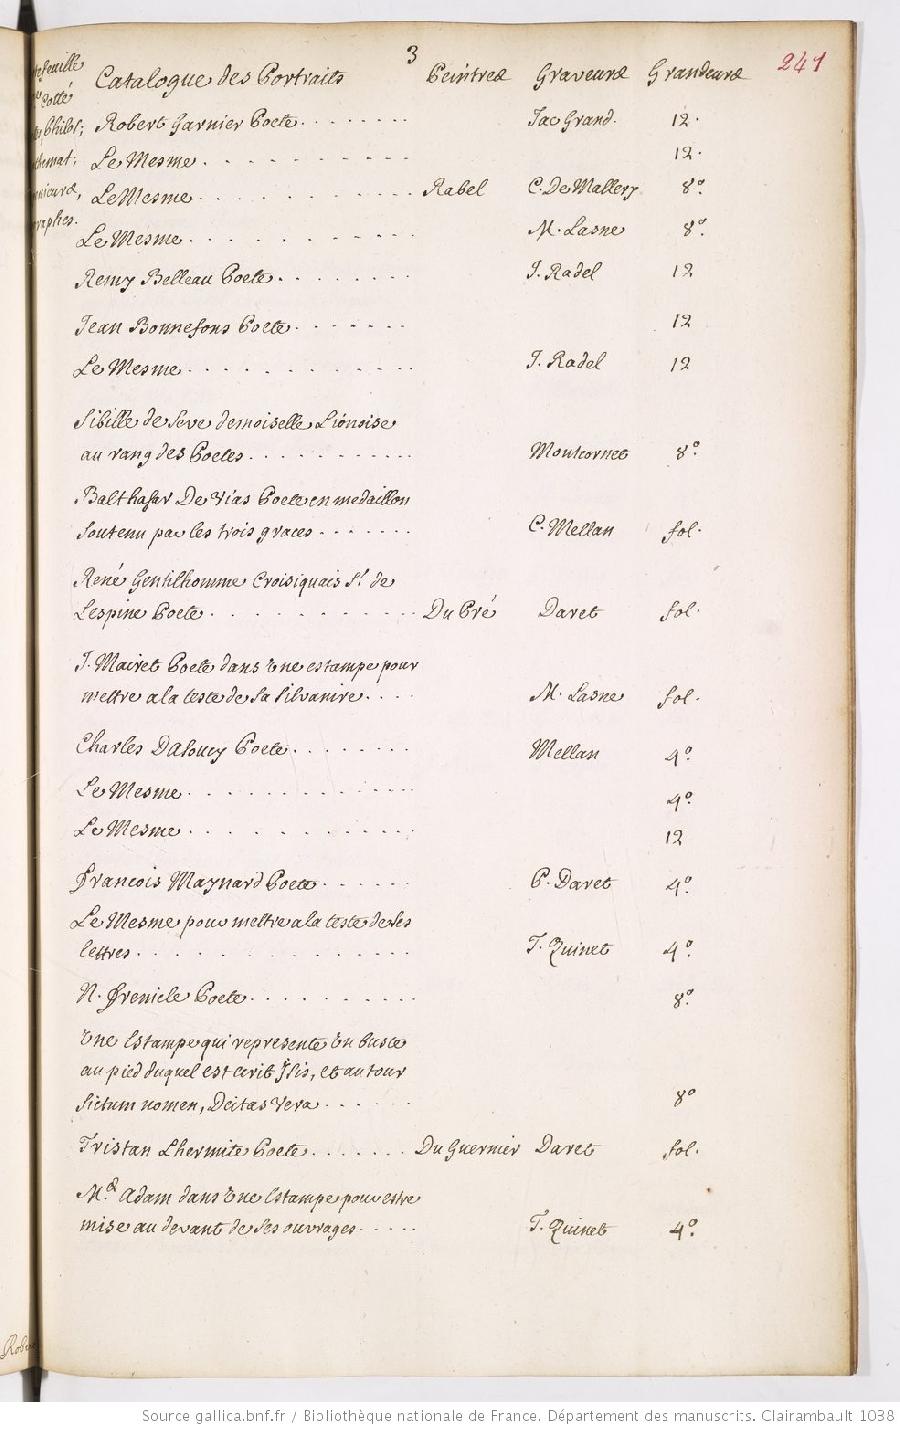 3
241
Catalogue des Portraits Peintres Graveurs Grandeurs
Robert Garnier Poete . . . . . . . . Jac Grand. 12.
Le Mesme . . . . . . . . . . . 12.
Le Mesme . . . . . . . . . . . Rabel C. De Mallery 8º.
Le Mesme . . . . . . . . . . . M. Lasne 8º.
Remy Belleau Poete . . . . . . . . J. Radel 12
Jean Bonnefons Poete . . . . . . . 12
Le Mesme . . . . . . . . . . . J. Radel 12
Sibille de Seve demoiselle Lionoise
au rang des Poetes . . . . . . . . . . Montcornet 8º.
Balthasar De Vias Poete en medaillon
soutenu par les trois graces . . . . . . . C. Mellan fol.
René Gentilhomme Croisiquais Sr. de
Lespine Poete . . . . . . . . . . . Du Pré Daret fol.
J. Mairet Poete dans une estampe pour
mettre a la teste de sa Silvanire . . . . M. Lasne fol.
Charles Dasoucy Poete . . . . . . . . Mellan 4º.
Le Mesme . . . . . . . . . . . 4º.
Le Mesme . . . . . . . . . . . 12
Francois Maynard Poete . . . . . . P. Daret 4º.
Le Mesme pour mettre a la teste de ses
lettres . . . . . . . . . . . . . T. Quinet 4º.
N. Frenicle Poete . . . . . . . . . . 8º.
Une Estampe qui represente un buste
au pied duquel est ecrit Isis, et autour
fictum nomen, Deitas vera . . . . . . 8º
Tristan Lhermite Poete . . . . . . . Du Guernier Daret fol.
Me. Adam dans une Estampe pour estre
mise au devant de ses ouvrages . . . . . T. Quinet 4º.
Source gallica.bnf.fr / Bibliothèque nationale de France. Département des manuscrits. Clairambault 1038